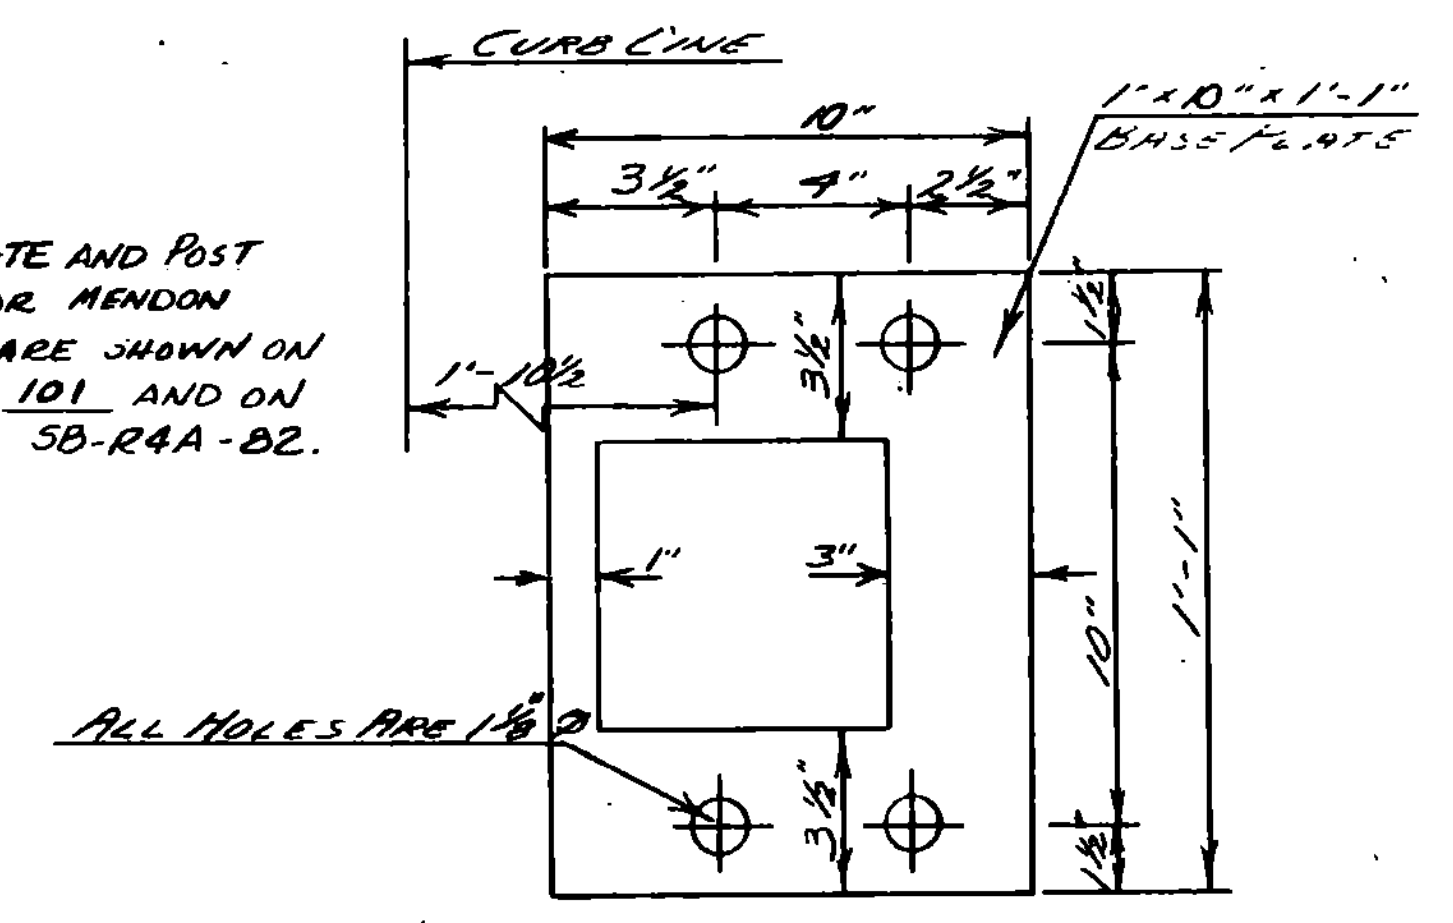 CURB LINE
1" x 10" x 1'-1"
BASE PLATE
10"
3 1/2"
4"
2 1/2"
TE AND POST
OR MENDON
ARE SHOWN ON
101 AND ON
SB-R4A-82.
1'-10 1/2
3 1/2"
1 1/2"
1"
3"
10"
1'-1"
ALL HOLES ARE 1 1/8" Ø
3 1/2"
1 1/2"